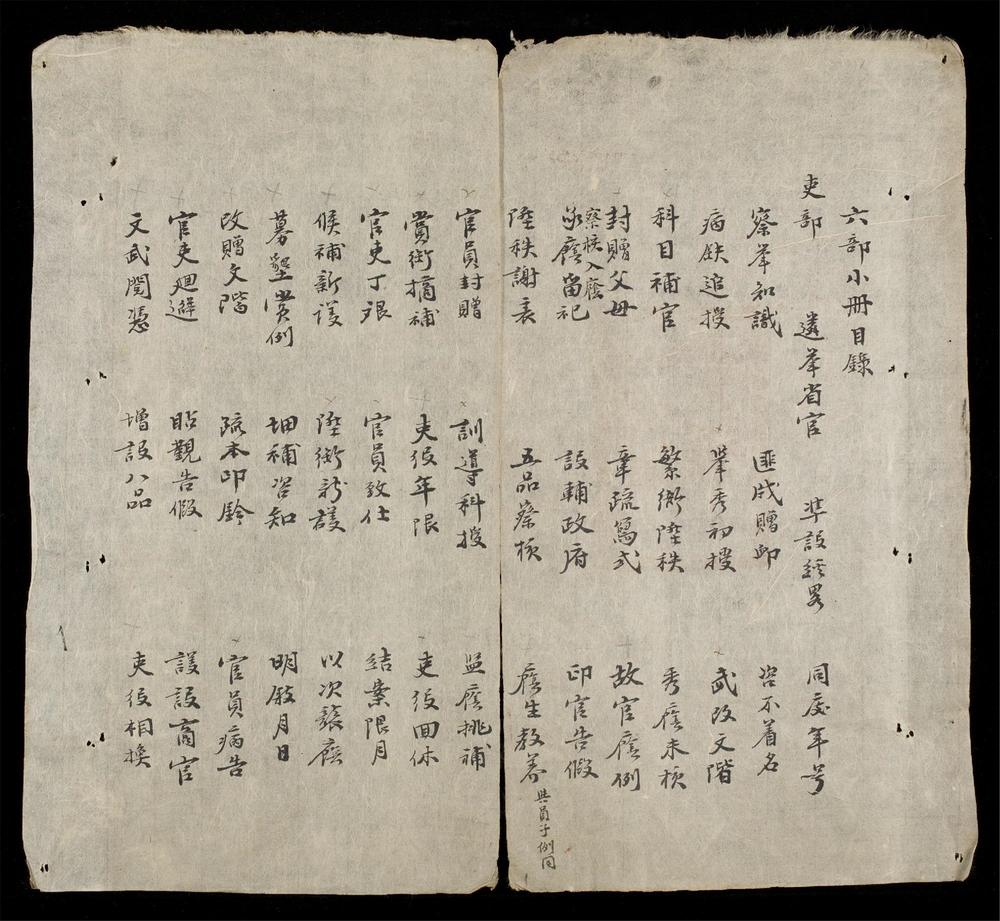 六部小册目錄
吏部 遴举省官 準設經畧 同庚年号
察举知識 匪戍贈卹 咨不着名
病缺追授 举秀初授 武改文階
科目補官 繁衔陞秩 秀廕未核
封贈父母 章疏寫式 故官廕例
察核入廕
承廕當祀 設輔政府 印官告假
陞秩謝表 五品察核 廕生教养 與員子例同
官員封贈 訓導科授 监廕挑補
賞衔摘補 吏役年限 吏役回休
官吏丁艰 官員致仕 結案限月
候補新護 陞衔新護 以次襲廕
募墾賞例 坤補咨知 明敍月日
改贈文階 疏本印鈐 官員病告
官吏廻避 眙觀告假 護設商官
文武閱憑 增設八品 吏役相換